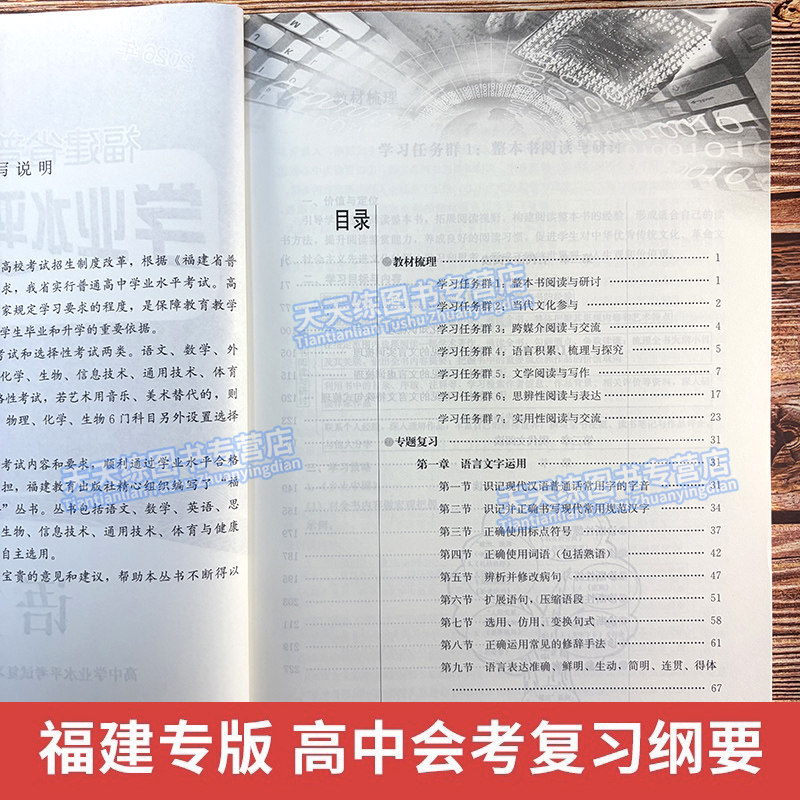 写说明
高校考试招生制度改革，根据《福建省普
求，我省实行普通高中学业水平考试。高
家规定学习要求的程度，是保障教育教学
学生毕业和升学的重要依据。
考试和选择性考试两类。语文、数学、外
化学、生物、信息技术、通用技术、体育
格性考试，若艺术用音乐、美术替代的，则
物理、化学、生物6门科目另外设置选择
考试内容和要求，顺利通过学业水平合格
担，福建教育出版社精心组织编写了“福
”丛书。丛书包括语文、数学、英语、思
生物、信息技术、通用技术、体育与健康
自主选用。
宝贵的意见和建议，帮助本丛书不断得以
目录
教材梳理 1
学习任务群1：整本书阅读与研讨 1
学习任务群2：当代文化参与 2
学习任务群3：跨媒介阅读与交流 4
学习任务群4：语言积累、梳理与探究 5
学习任务群5：文学阅读与写作 7
学习任务群6：思辨性阅读与表达 17
学习任务群7：实用性阅读与交流 23
专题复习 31
第一章 语言文字运用 31
第一节 识记现代汉语普通话常用字的字音 31
第二节 识记并正确书写现代常用规范汉字 34
第三节 正确使用标点符号 37
第四节 正确使用词语（包括熟语） 42
第五节 辨析并修改病句 47
第六节 扩展语句，压缩语段 51
第七节 选用、仿用、变换句式 58
第八节 正确运用常见的修辞手法 61
第九节 语言表达准确、鲜明、生动，简明、连贯、得体
67
天天练图书专营店
Tiantianlian Tushu Zhuanyingdian
福建专版 高中会考复习纲要